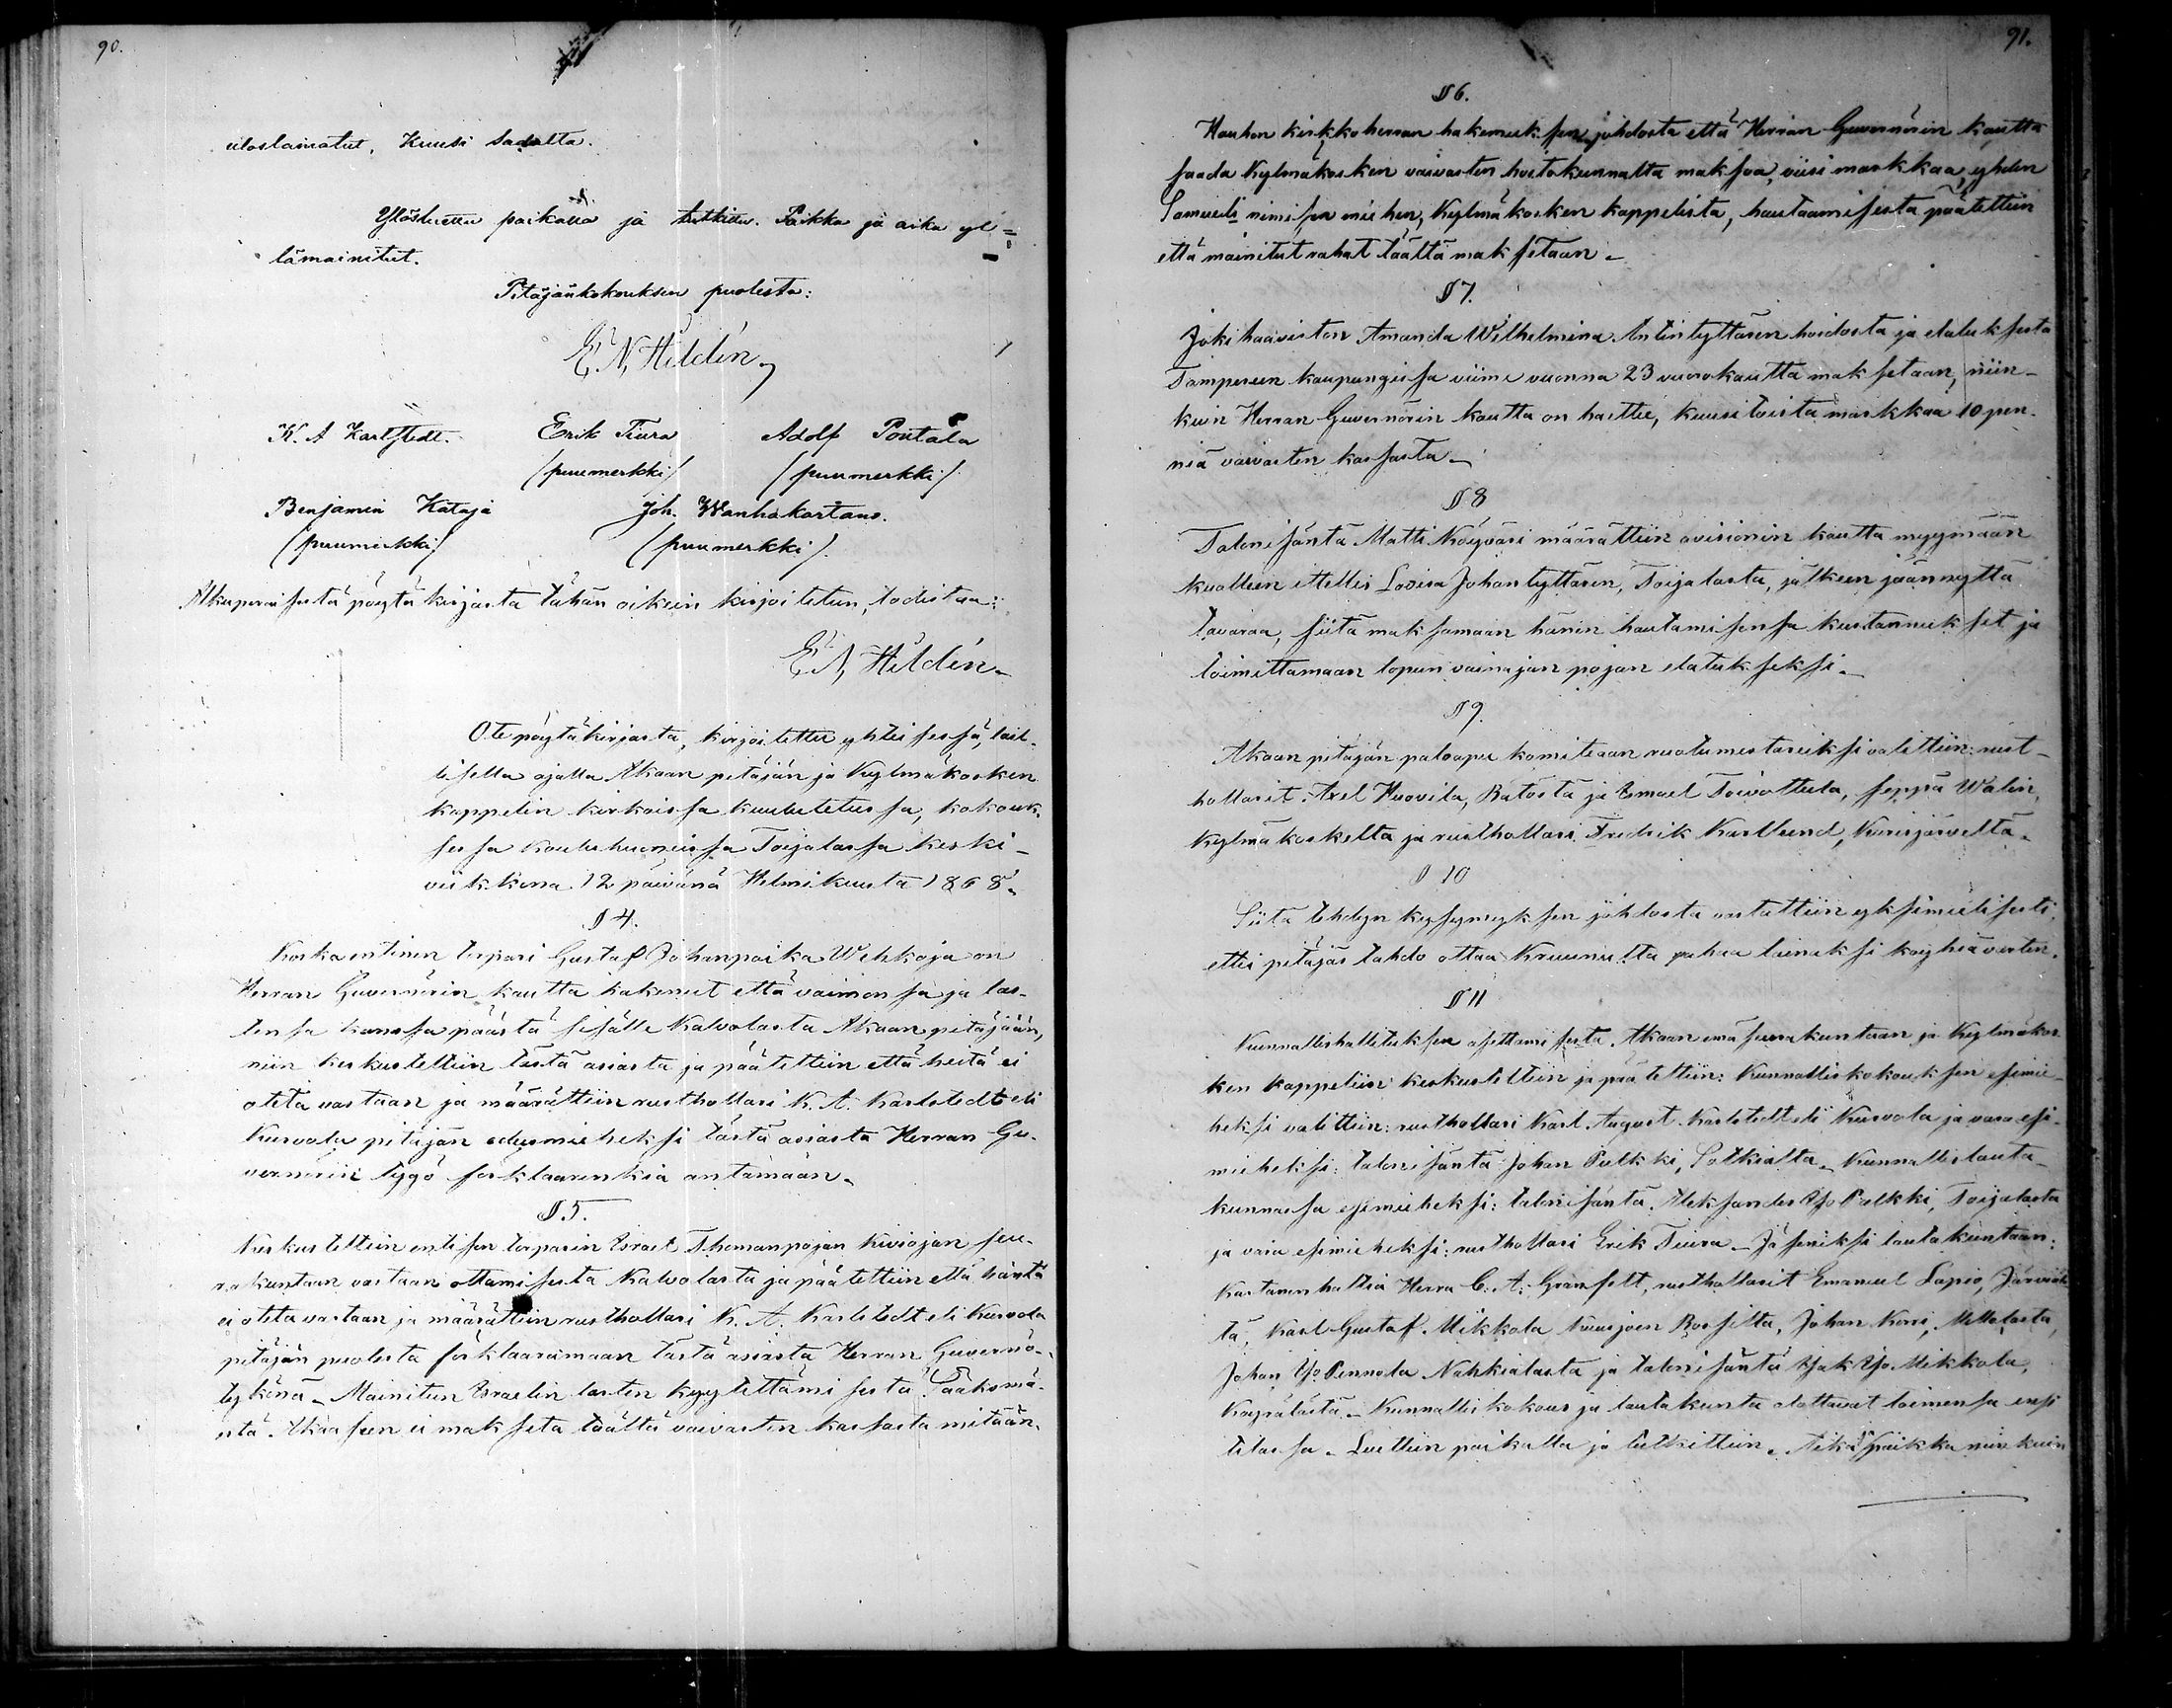 90.
uloslainatut. Kuusi sadalta.
Ylösluettu paikalla ja tutkittu. Paikka ja aika yl=
lämainitut.
Pitäjänkokouksen puolesta:
E. N. Hildén
K. A Karlstedt. Erik Tiura Adolf Pontala
(puumerkki) (puumerkki).
Benjamin Kataja Joh. Wanhakartano.
(puumerkki) (puumerkki).
Alkuperäisestä pöytäkirjasta tähän oikein kirjoitetun, todistaa:
E. N. Hildén.
Ote pöytäkirjasta, kirjoitettu yhteisessä, lail-
lisella ajalla Akaan pitäjän ja Kylmäkosken
kappelin kirkoissa kuulutetussa, kokouk-
sessa kouluhuoneissa Toijalassa keski-
viikkona 12 päivänä Helmikuuta 1868.
§ 4.
Koska entinen torpari Gustaf Johanpoika Wehkoja on
Herran Guvernörin kautta hakenut että vaimonsa ja las-
tensa kanssa päästä sisälle Kalvolasta Akaan pitäjään,
niin keskusteltiin tästä asiasta ja päätettiin että heitä ei
oteta vastaan ja määrättiin rusthollari K. A. Karlstedt eli
Kurvola pitäjän edusmieheksi tästä asiasta Herran Gu-
vernörin tygö förklaarinkia antamaan.
§. 5.
Keskusteltiin entisen torparin Israel Thomanpojan Kiviojan seu-
rakuntaan vastaan ottamisesta Kalvolasta ja päätettiin että häntä
ei oteta vastaan ja määrättiin rusthollari K. A. Karlstedt eli Kurvola
pitäjän puolesta förklaaramaan tästä asiasta Herran Guvernö-
tykönä. Mainitun Israelin lasten kyytittämisestä Sääksmä-
eltä Akaaseen ei makseta täältä vaivasten kassasta mitään.
91.
§ 6.
Hauhon kirkkoherran hakemuksen johdosta että Herran Guvernörin kautta
saada Kylmäkosken vaivasten hoitokunnalta maksoa, viisi markkaa, yhden
Samueli nimisen miehen, Kylmäkosken kappelista, hautaamisesta päätettiin
että mainitut rahat täältä maksetaan.
§ 7.
Jokihaaviston Amanda Wilhelmina Antintyttären hoidosta ja elatuksesta
Tampereen kaupungissa viime vuonna 23 vuorokautta maksetaan, niin-
kuin Herran Guvernörin kautta on haettu, kuusitoista markkaa 10 pen-
niä vaivasten kassasta.
§ 8
Talonisäntä Matti Köyväri määrättiin avisionin kautta myymään
kuolleen ittellis Lovisa Johantyttären, Toijalasta, jälkeen jäännyttä
tavaraa, siitä maksamaan hänen hautamisensa kustannukset ja
toimittamaan lopun vainajan pojan elatukseksi.
§ 9.
Akaan pitäjän paloapu komiteaan ruotumestareiksi valittiin: rust-
hollarit: Axel Huovila, Rätöstä ja Emael Toivottula, seppä Walin,
Kylmäkoskelta ja rusthollari Fredrik Karllund, Kurisjärveltä.
§ 10
Siitä tehdyn kysymyksen johdosta vastattiin yksimielisesti,
ettei pitäjäs tahdo ottaa Kruunulta rahaa lainaksi köyhiä varten.
§ 11
Kunnallishallituksen asettamisesta Akaan emäseurakuntaan ja Kylmäkos
ken kappeliin keskusteltiin ja päätettiin: Kunnalliskokouksen esimie-
heksi valittiin: rusthollari Karl August Karlstedt eli Kurvola ja vara esi-
mieheksi: talonisäntä Johan Pulkki, Sotkialta. Kunnallislauta-
kunnassa esimieheksi: talonisäntä Aleksander Yso Pälkki, Toijalasta
ja vara esimieheksi: rusthollari Erik Tiura. Jäseniksi lautakuntaan:
Kartanonhaltia Herra C. A. Granfelt, rusthollarit Emanuel Lapio, Järvial-
ta, Karl Gustaf Mikkola Nuusjoen Rossilta, Johan Koni, Mellolasta,
Johan Yso Pennola Nahkialasta ja talonisäntä Isak Yso Mikkola,
Köyrälästä. Kunnalliskokous ja lautakunta alottavat toimensa ensi
tilassa. Luettiin paikalla ja tutkittiin. Aika ja paikka niin kuin